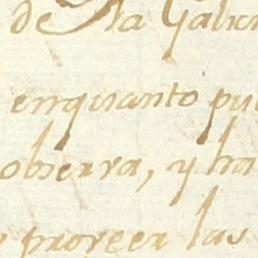 de Sta Gabr
enquanto pu
observa, y ha
proveer las